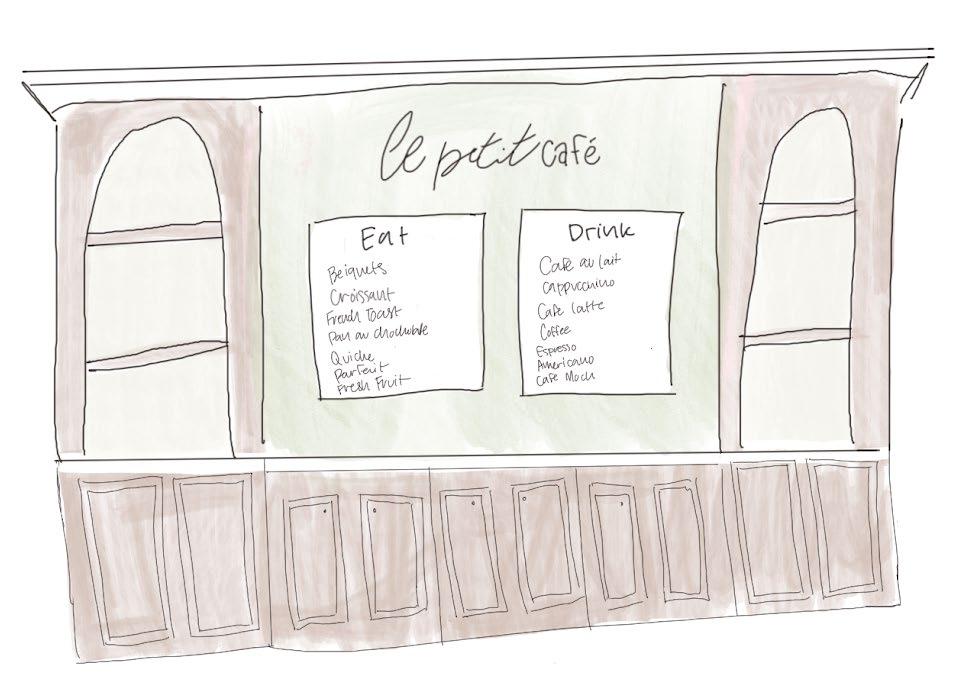 le petit café
Eat
Beiquets
Croissant
French Toast
Pan au chocholate
Quiche
Parfeit
Fresh Fruit
Drink
Cafe au lait
Cappucchino
Cafe latte
Coffee
Espresso
Americano
Cafe Moch